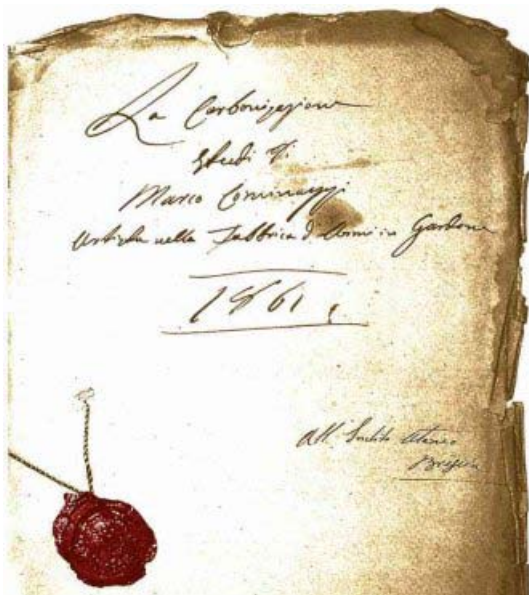 La Carbonizzazione
Studi di
Marco Cominazzi
Artista nella Fabbrica d'Armi in Gardone
1861
All' Inclito Ateneo
Brescia